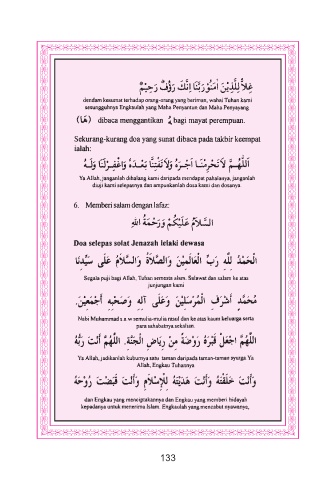 غِلًّا لِّلَّذِيْنَ اٰمَنُوْا رَبَّنَا اِنَّكَ رَؤُفٌ رَحِيْمٌ
dendam kesumat terhadap orang-orang yang beriman, wahai Tuhan kami
sesungguhnya Engkaulah yang Maha Penyantun dan Maha Penyayang.
(هَا) dibaca menggantikan هُ bagi mayat perempuan.
Sekurang-kurang doa yang sunat dibaca pada takbir keempat
ialah:
اَللّٰهُمَّ لَاتَحْرِمْنَا اَجْرَهُ وَلَاتَفْتِنَّا بَعْدَهُ وَاغْفِرْلَنَا وَلَهُ
Ya Allah, janganlah dihalang kami daripada mendapat pahalanya, janganlah
diuji kami selepasnya dan ampunkanlah dosa kami dan dosanya
6. Memberi salam dengan lafaz:
السَّلاَمُ عَلَيْكُمْ وَرَحْمَةُ اللهِ
Doa selepas solat Jenazah lelaki dewasa
الْحَمْدُ لِلَّهِ رَبِّ الْعَالَمِيْنَ وَالصَّلَاةُ وَالسَّلَامُ عَلَى سَيِّدِنَا
Segala puji bagi Allah, Tuhan semesta alam. Selawat dan salam ke atas
junjungan kami
مُحَمَّدٍ أَشْرَفِ الْمُرْسَلِيْنَ وَعَلَى آلِهِ وَصَحْبِهِ أَجْمَعِيْنَ.
Nabi Muhammad s.a.w semulia-mulia rasul dan ke atas kaum keluarga serta
para sahabatnya sekalian.
اللَّهُمَّ اجْعَلْ قَبْرَهُ رَوْضَةً مِنْ رِيَاضِ الْجَنَّةِ. اللَّهُمَّ أَنْتَ رَبُّهُ
Ya Allah, jadikanlah kuburnya satu taman daripada taman-taman syurga Ya
Allah, Engkau Tuhannya
وَأَنْتَ خَلَقْتَهُ وَأَنْتَ هَدَيْتَهُ لِلْإِسْلَامِ وَأَنْتَ قَبَضْتَ رُوْحَهُ
dan Engkau yang menciptakannya dan Engkau yang memberi hidayah
kepadanya untuk menerima Islam. Engkaulah yang mencabut nyawanya,
133